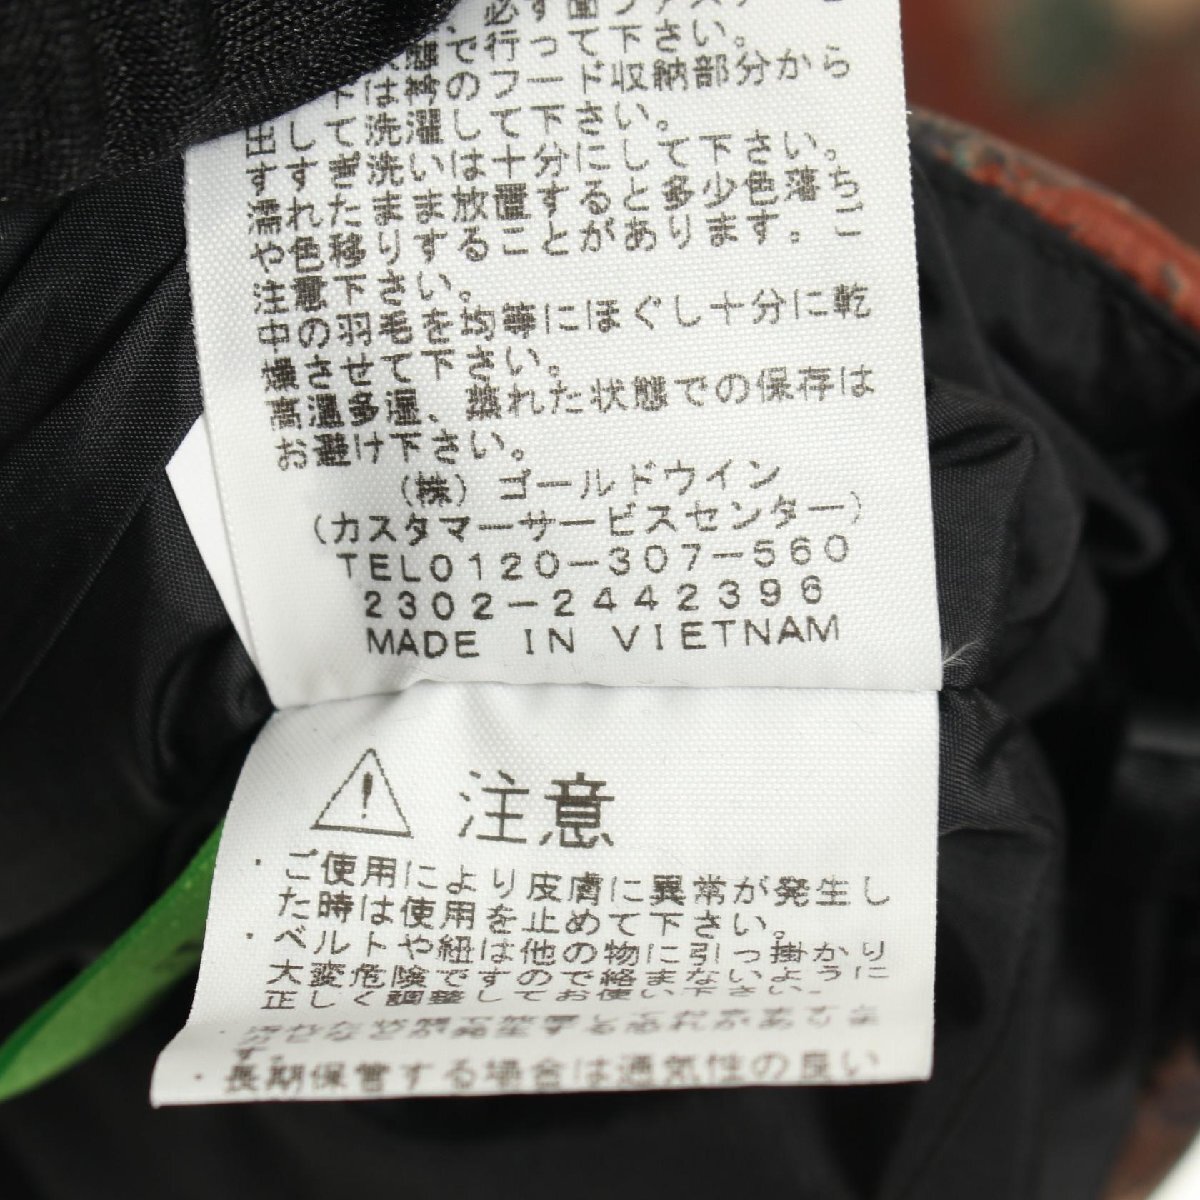 態で行って下さい。
は衿のフード収納部分から
出して洗濯して下さい。
すすぎ洗いは十分にして下さい。
濡れたまま放置すると多少色落ち
や色移りすることがあります。ご
注意下さい。
中の羽毛を均等にほぐし十分に乾
燥させて下さい。
高温多湿、蒸れた状態での保存は
お避け下さい。
(株)ゴールドウイン
(カスタマーサービスセンター)
TEL0120-307-560
2302-2442396
MADE IN VIETNAM
注意
・ご使用により皮膚に異常が発生し
た時は使用を止めて下さい。
・ベルトや紐は他の物に引っ掛かり
大変危険ですので絡まないように
正しく調整してお使い下さい。
す。
・長期保管する場合は通気性の良い